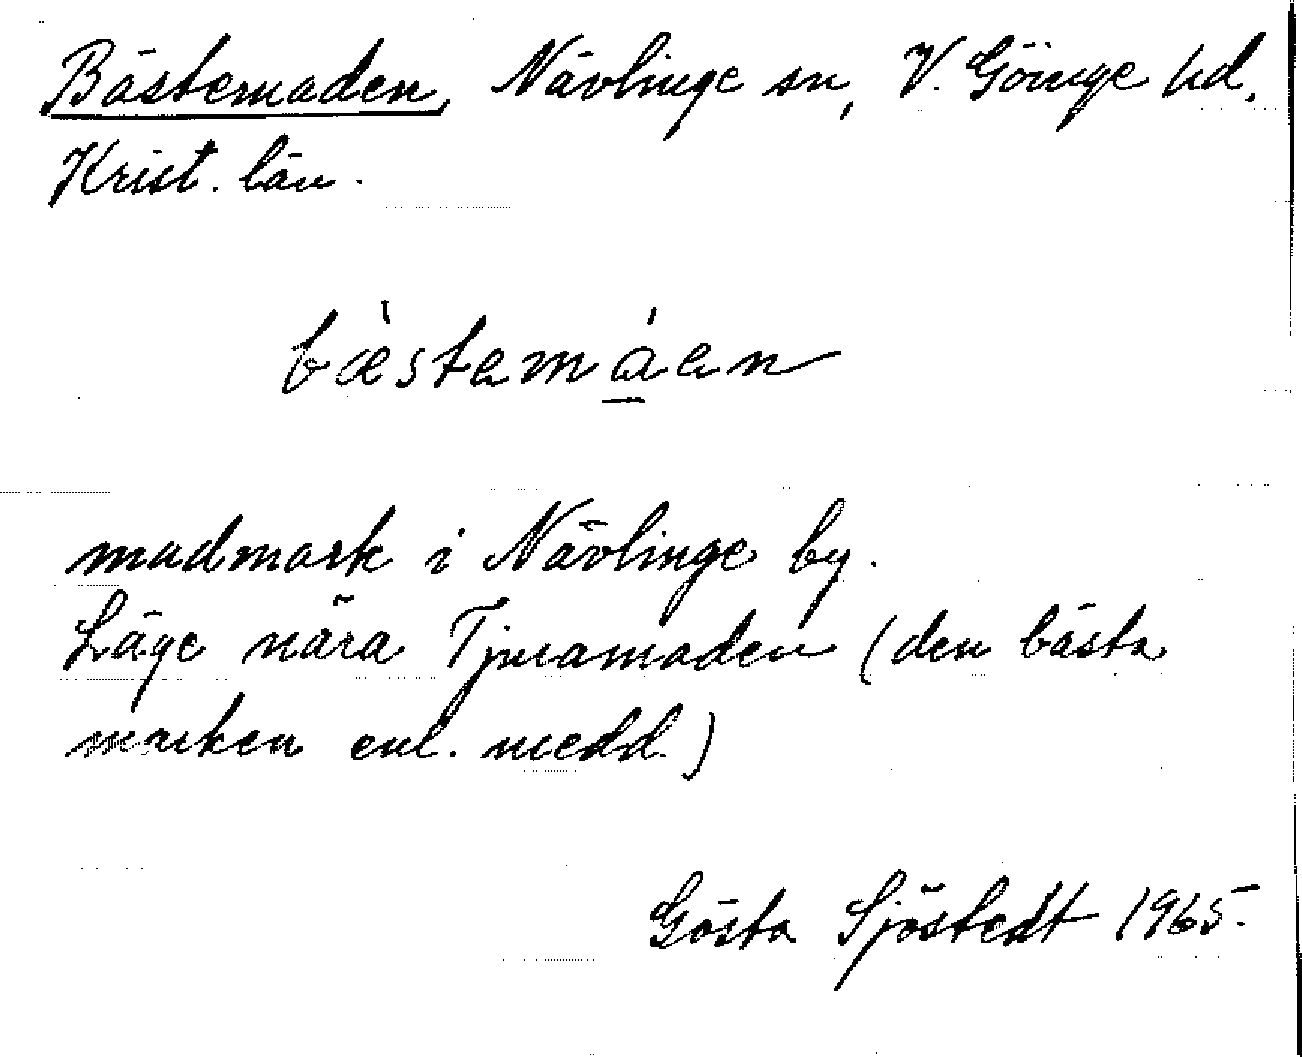 Bästemaden, Nävlinge sn, V. Göinge hd.
Krist. län.
bæ̀stamá̱en
madmark i Nävlinge by.
Läge nära Tjuramaden (den bästa
marken enl. medd.)
Gösta Sjöstedt 1965.